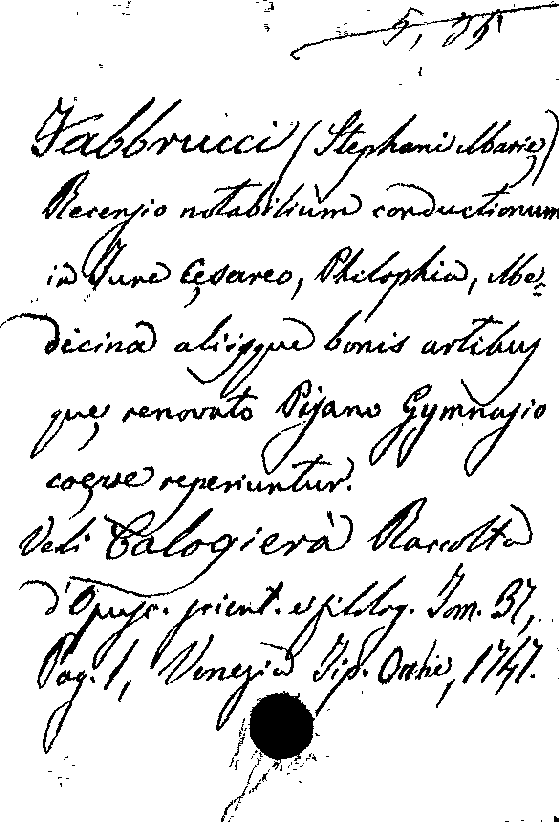 5, 35
Fabbrucci (Stephani Marię)
Recensio notabilium conductionum
in Jure Cęsareo, Philophia, Me=
dicina aliisque bonis artibus
quę renovato Pisano Gymnasio
reperiuntur.
Vedi Calogierà Raccolta
d'Opusc. scient. e filolog. Tom. 37,
Pag. 1, Venezia Tip. 1747.